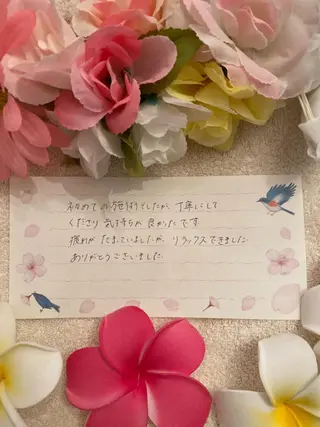 初めての施術でしたが、丁寧にして
くださり気持ちが良かったです
疲れが たまっていましたが、リラックスできました
ありがとうございました